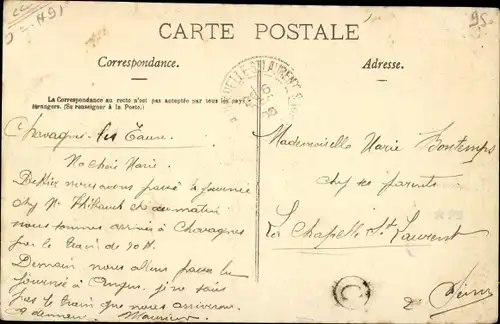 CARTE POSTALE
Correspondance.
Adresse.
La Correspondance au recto n'est pas acceptée par tous les pays
étrangers. (Se renseigner à la Poste.)
Chavagnes les Eaux
Ma chère Marie
nous avons passé la journée
chez Mr Thibault ce matin
nous sommes arrivés à Chavagnes
par le train de 10 H.
Demain nous allons passer la
journée à Angers je ne sais
pas le train que nous arriverons
A demain Maurice
Mademoiselle Marie Bontemps
chez ses parents
La Chapelle St Laurent
2 Sèvres
C